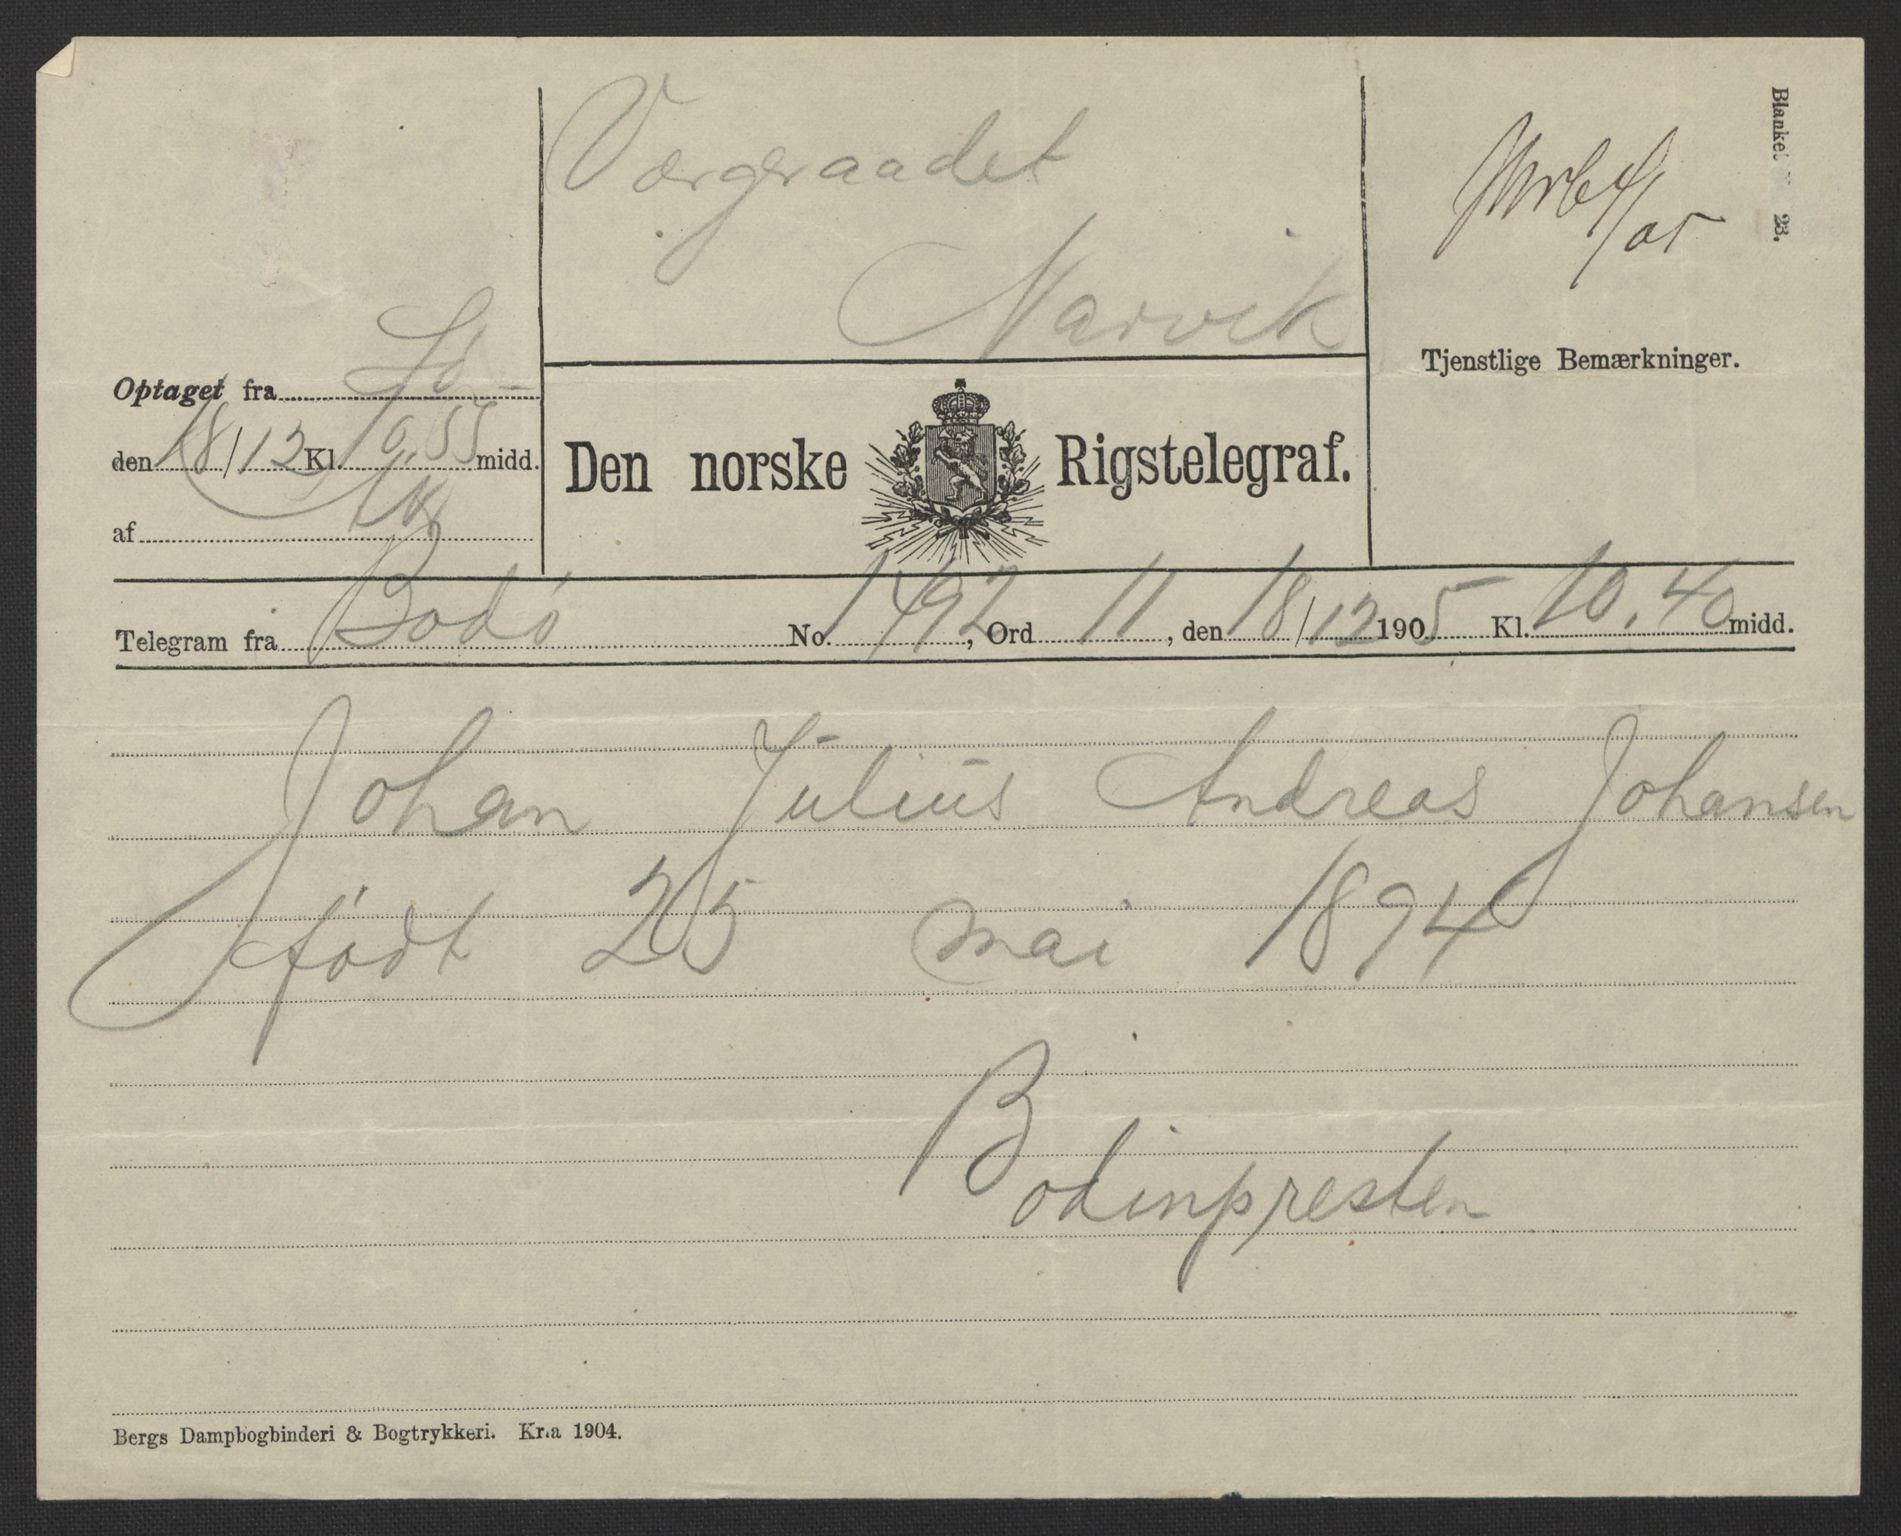 Værgeraadet
Narvik
Blanket 23.
Tjenstlige Bemærkninger.
Optaget fra
den 18/12 Kl. 10.55 midd.
af
Den norske Rigstelegraf.
Telegram fra Bodø No. 1492, Ord 11, den 18/12 1905 Kl. 10.40 midd.
Johan Julius Andreas Johansen
født 25 mai 1894
Bodinpresten
Bergs Dampbogbinderi & Bogtrykkeri. Kr.a 1904.